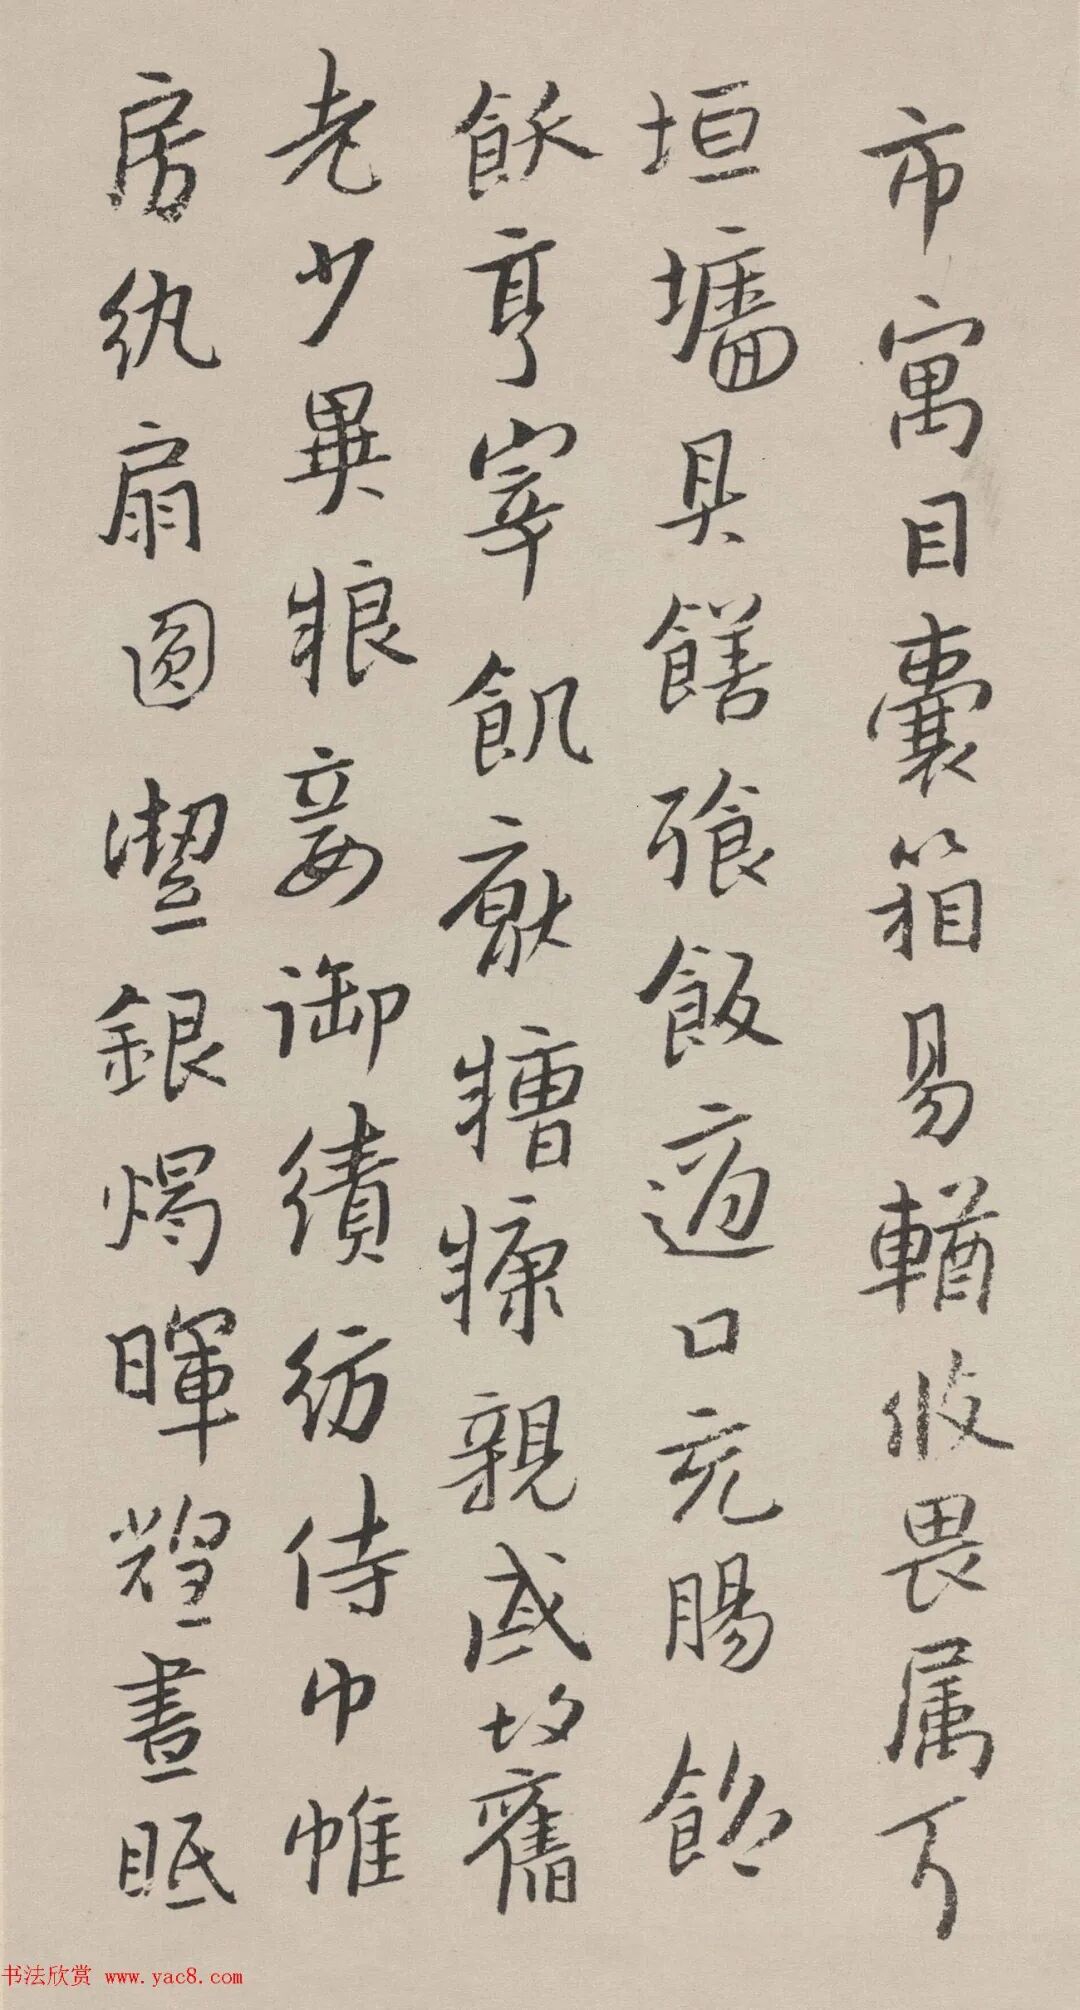 市寓目囊箱易輶攸畏属耳
垣墻具饍飡飯適口充腸飽
飫亨宰飢厭糟糠親戚故舊
老少異粮妾御績紡侍巾帷
房紈扇圓潔銀燭暉煌晝眠
书法欣赏 www.yac8.com